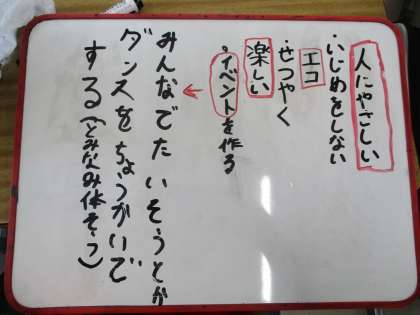 人にやさしい
・いじめをしない
エコ
・せつやく
楽しい
・イベントを作る
みんなでたいそうとか
ダンスをちょうかいで
する(とみなみ体そう)